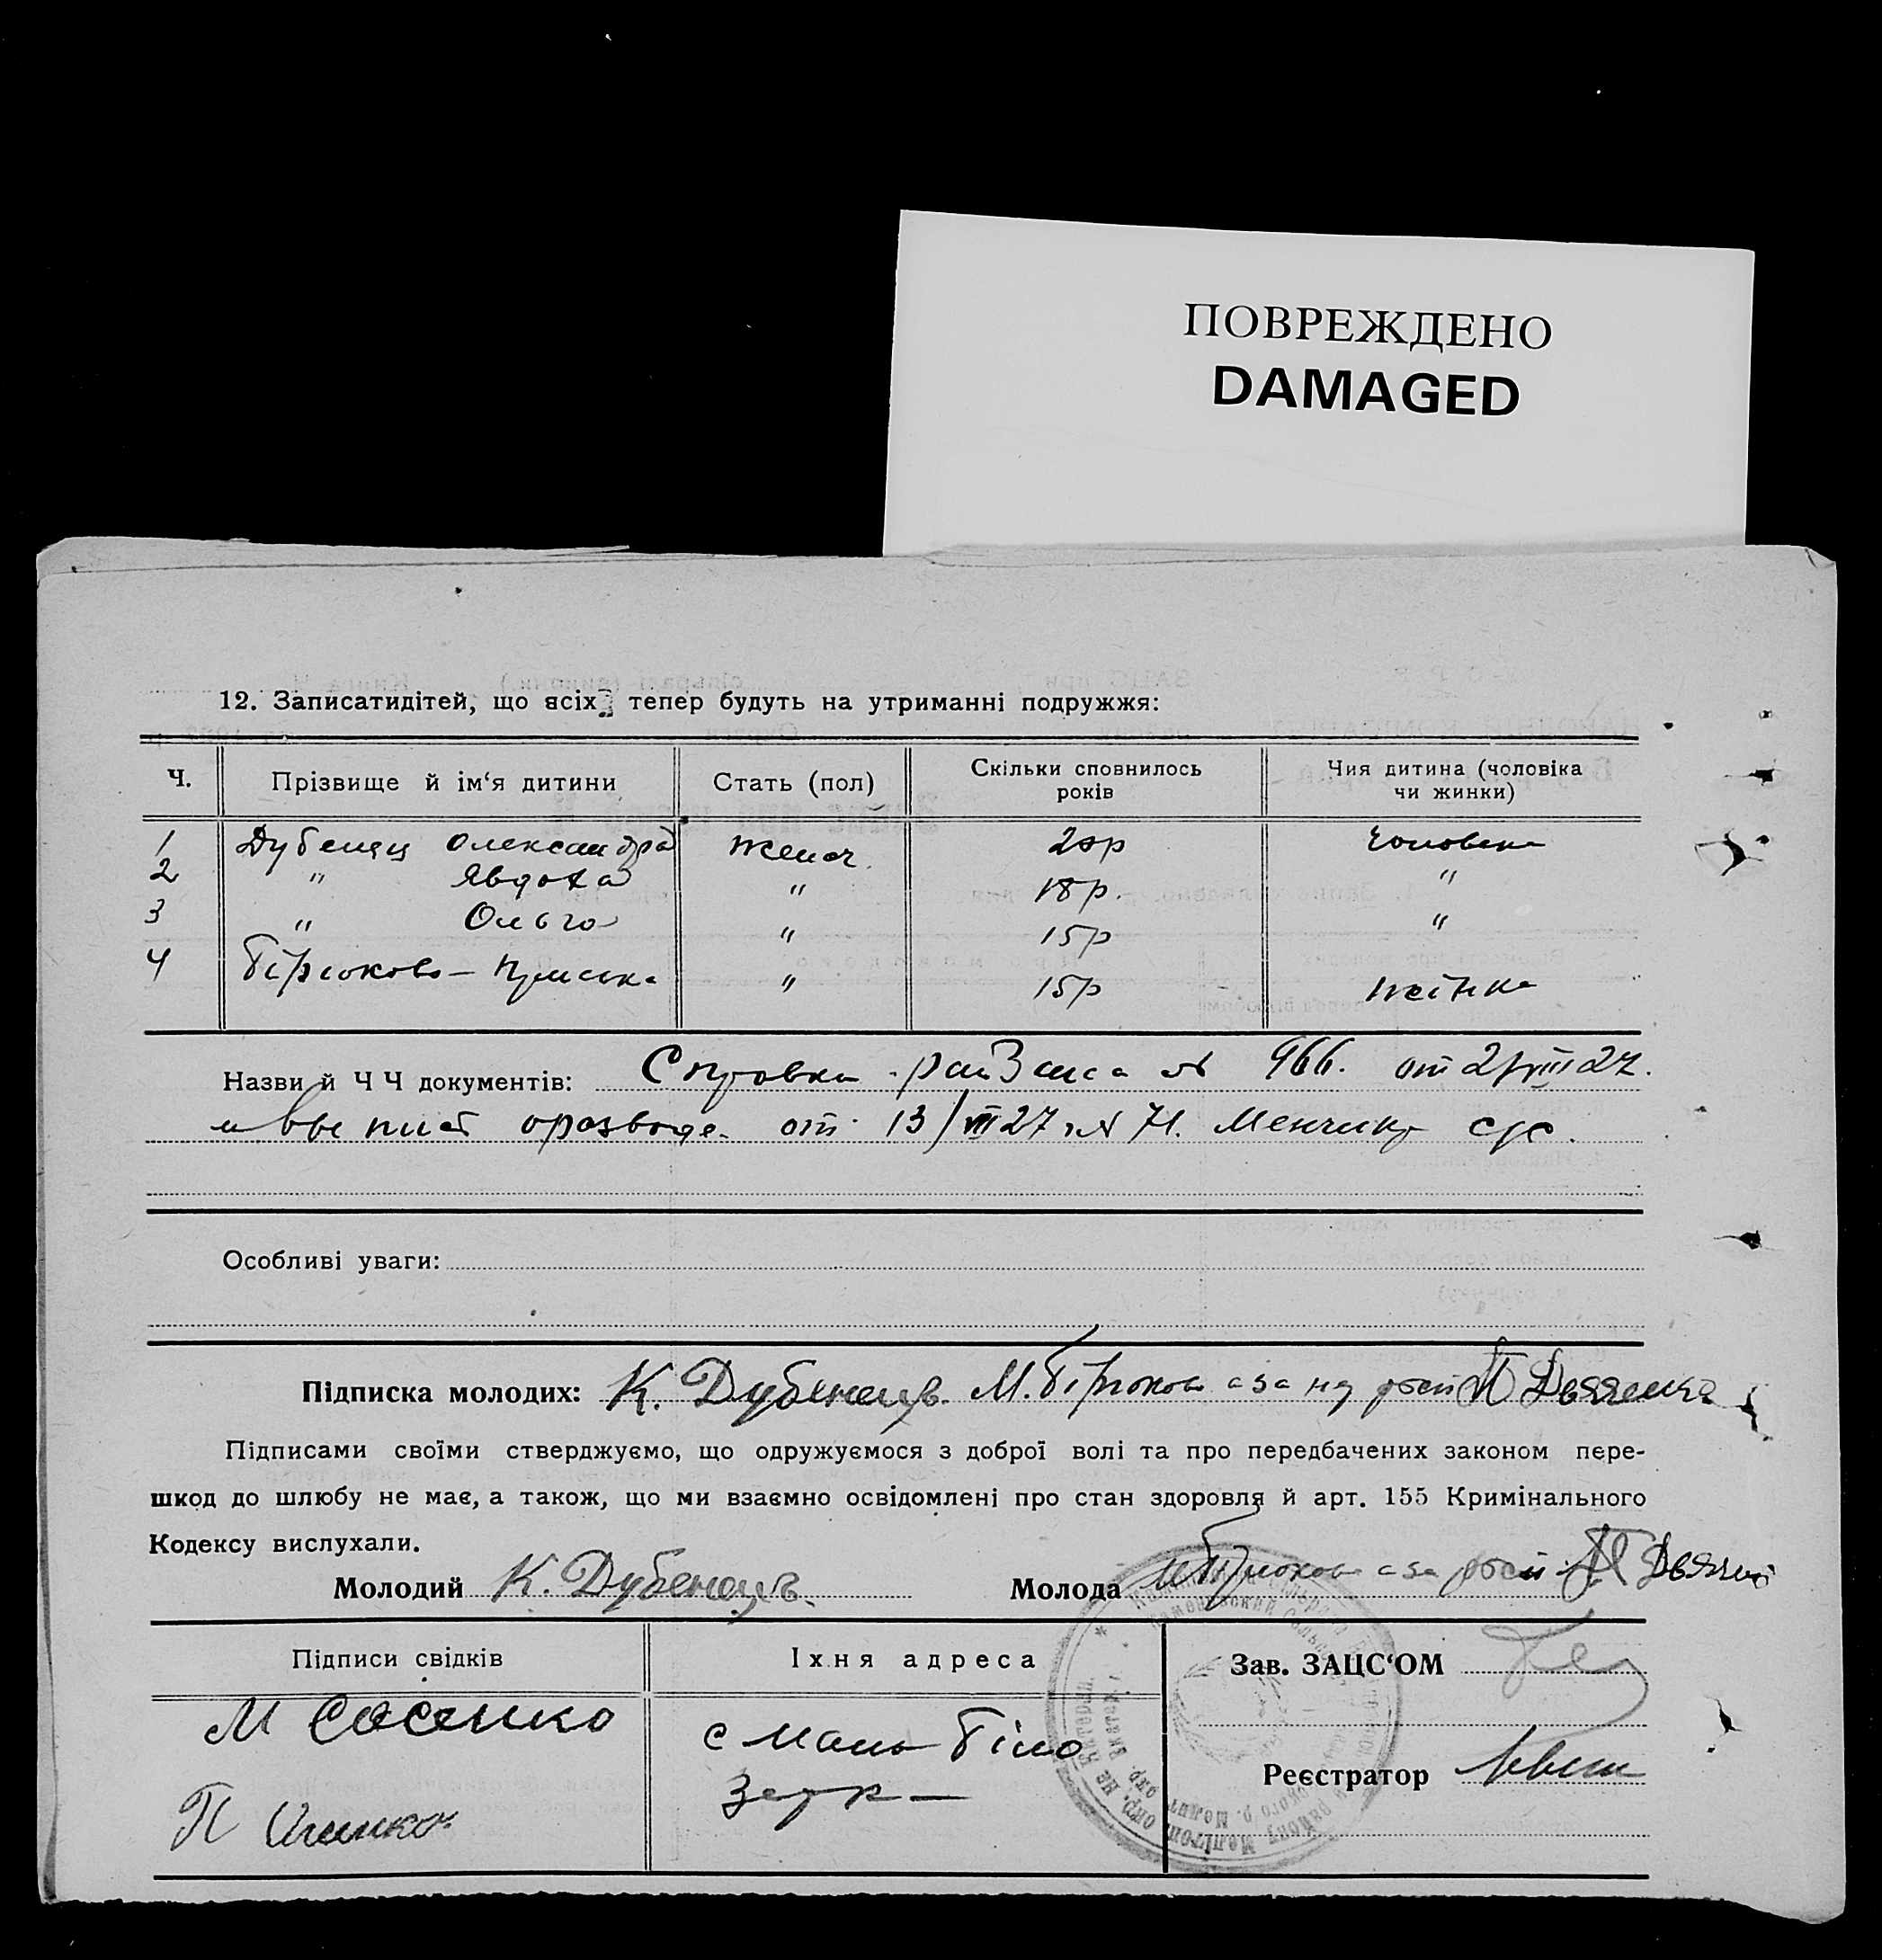 ПОВРЕЖДЕНО
DAMAGED
12. Записатидітей, що всіх тепер будуть на утриманні подружжя:
Ч. Прізвище й ім‘я дитини Стать (пол) Скільки сповнилось років Чия дитина (чоловіка чи жинки)
1 Дубенец Олександра женск. 20р чоловека
2 " Явдоха " 18р. "
3 " Ольга " 15р "
4 Бірюкова " 15р жінка
Назви й Ч Ч документів: Справка райЗагса № 966. от 2 VIII 27.
и о разводе от 13/VII 27 № 71. с/с.
Особливі уваги:
Підписка молодих: К. Дубенець. М. Бірюкова а за
Підписами своїми стверджуємо, що одружуємося з доброї волі та про передбачених законом пере-
шкод до шлюбу не має, а також, що ми взаємно освідомлені про стан здоровля й арт. 155 Кримінального
Кодексу вислухали.
Молодий К. Дубенець. Молода М Бірюкова а за
Підписи свідків Їхня адреса Зав. ЗАЦС‘ОМ
М Сосенко с Мало Біло
зерк—
Реєстратор
П